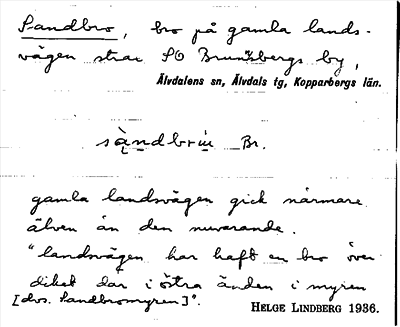 Sandbro, bro på gamla lands-
vägen strax SO Brunnsbergs by,
Älvdalens sn, Älvdals tg, Kopparbergs län.
sàndbrɯ Br.
gamla landsvägen gick närmare
älven än den nuvarande.
"landsvägen har haft en bro över
diket där i östra änden i myren
[dvs. Sandbromyren]".
HELGE LINDBERG 1936.